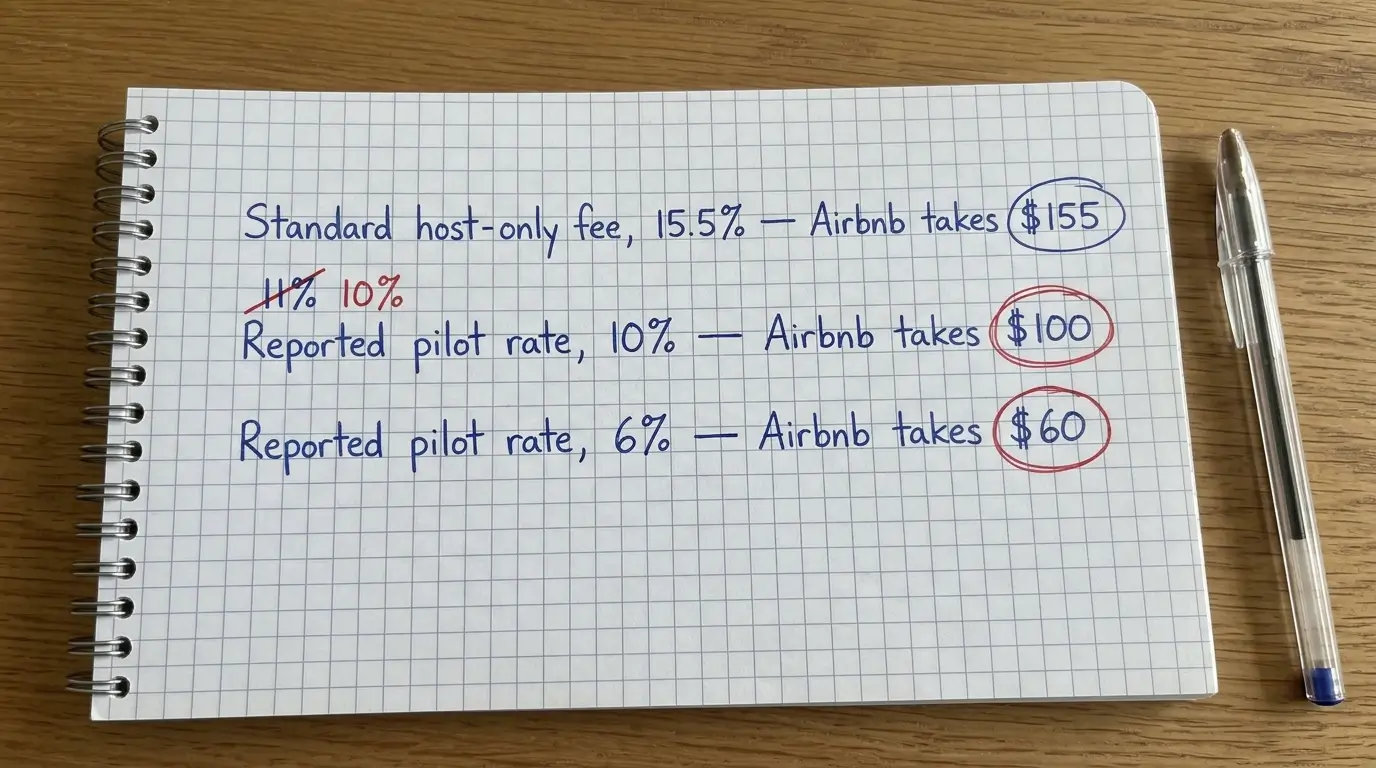 Standard host-only fee, 15.5% — Airbnb takes $155
11% 10%
Reported pilot rate, 10% — Airbnb takes $100
Reported pilot rate, 6% — Airbnb takes $60